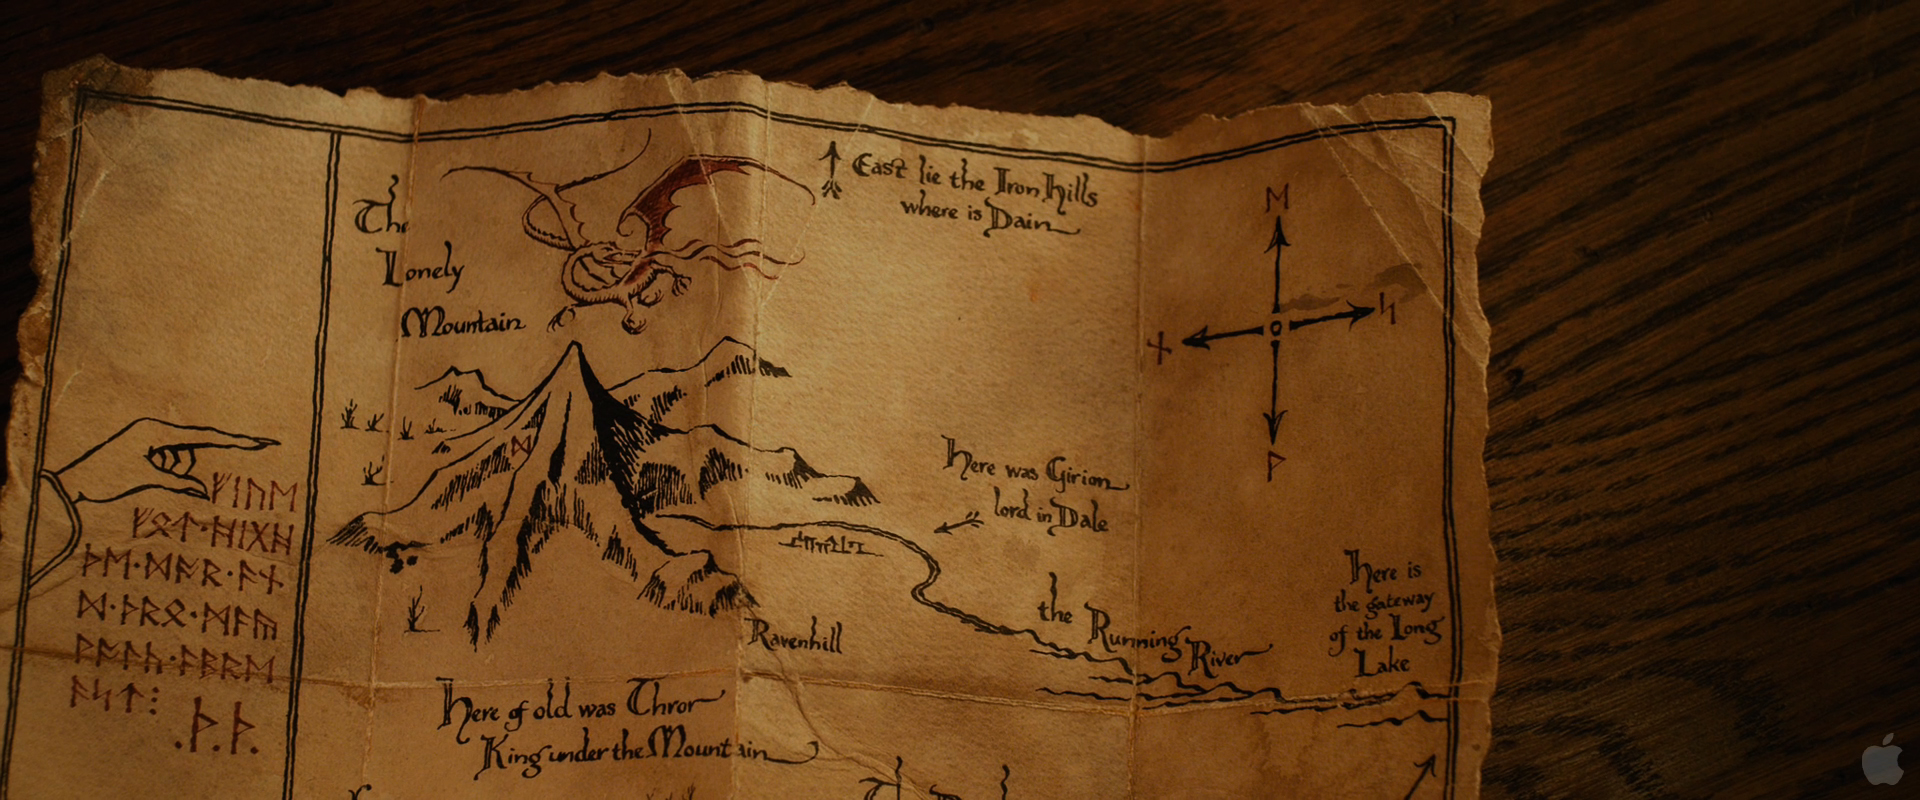 The
Lonely
Mountain
East lie the Iron Hills
where is Dain
ᛖ
ᚾ
ᛋ
ᚹ
ᛞ
ᚠᛁᚢᛖ
ᚠᛟᛏ·ᚻᛁᚷᚻ
ᚦᛖ·ᛞᚩᚱ·ᚪᚾ
ᛞ·ᚦᚱᛟ·ᛗᚪᚣ
ᚹᚪᛚᚳ·ᚪᛒᚱᛖ
ᚪᛋᛏ⁝
.ᚦ.ᚦ.
Here was Girion
lord in Dale
the Running River
Here is
the gateway
of the Long
Lake
Ravenhill
Here of old was Thror
King under the Mountain